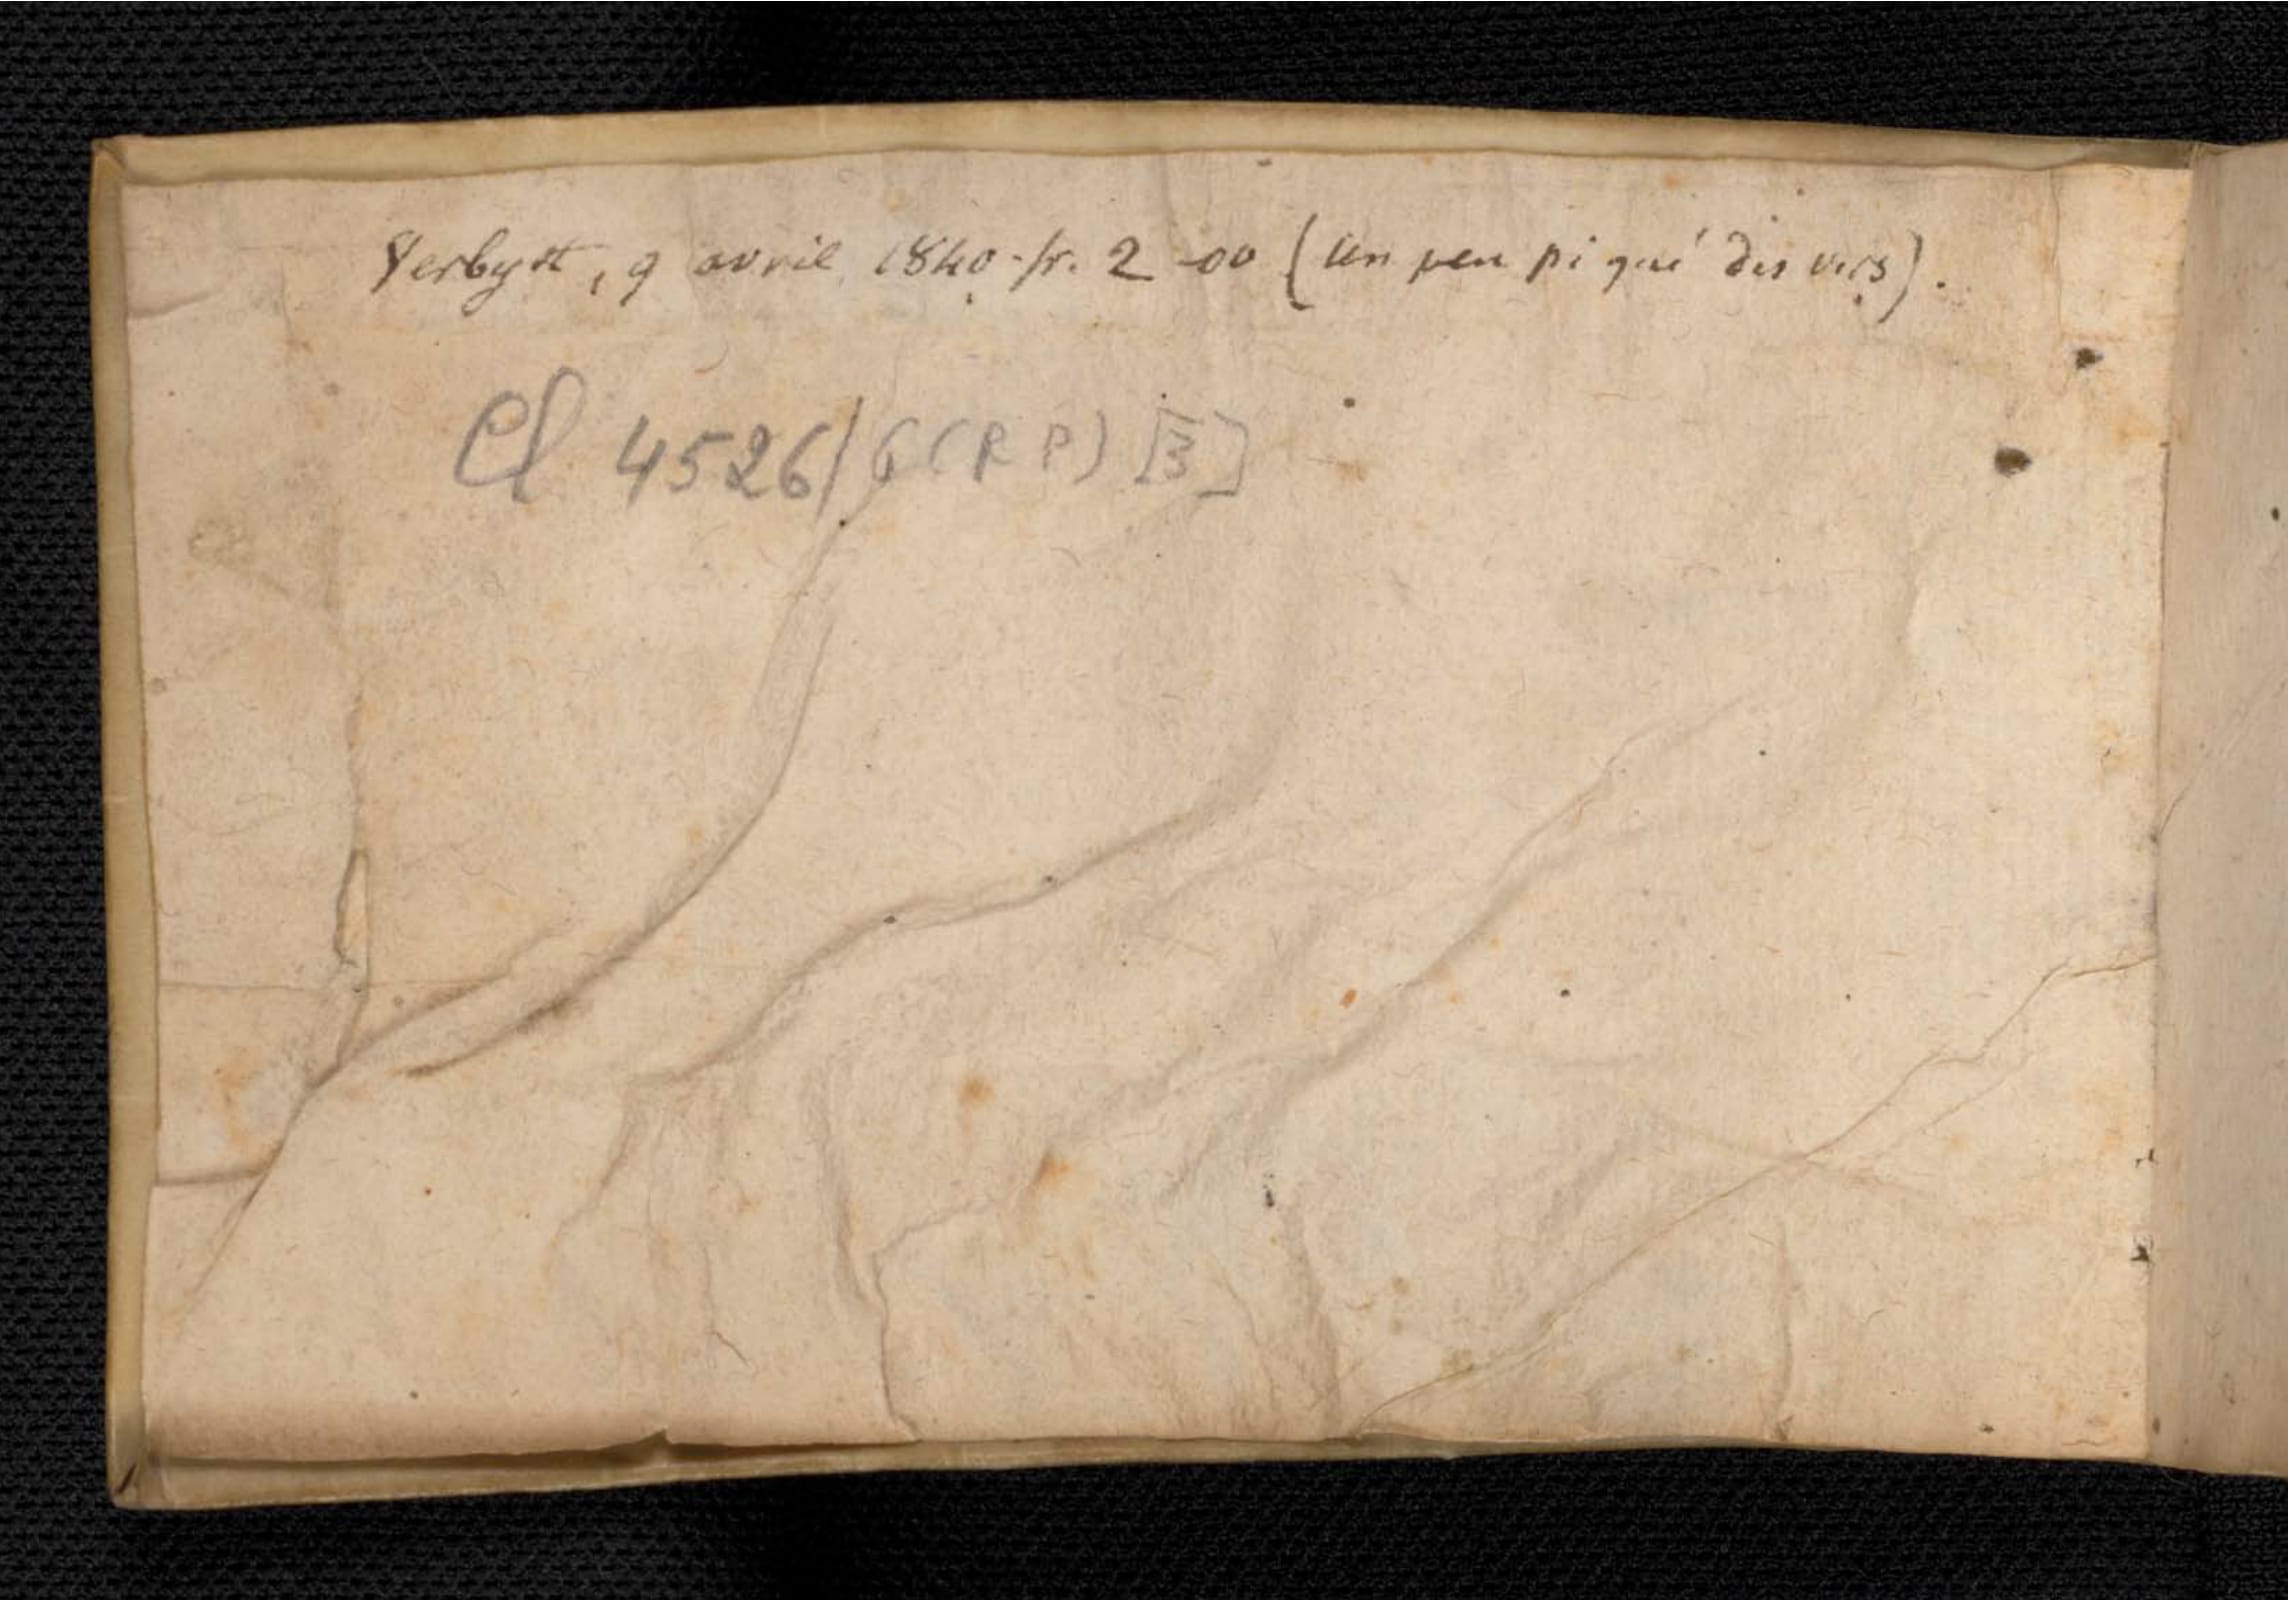 Verbyst, 9 avril 1840 - fr. 2-00 (un peu piqué des vers).
Cl 4526/6 (RP) [3]